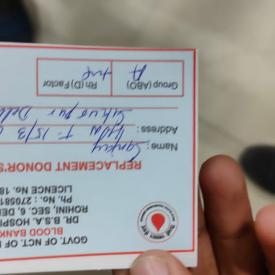 GOVT. OF NCT. OF
BLOOD BANK
DR. B.S.A. HOSPI
ROHINI, SEC. 6, DEL
Ph. No. : 270581
LICENCE No. 18
REPLACEMENT DONOR'S
Name: Sanjay
Address:
Group (ABO) A Rh (D) Factor +ve